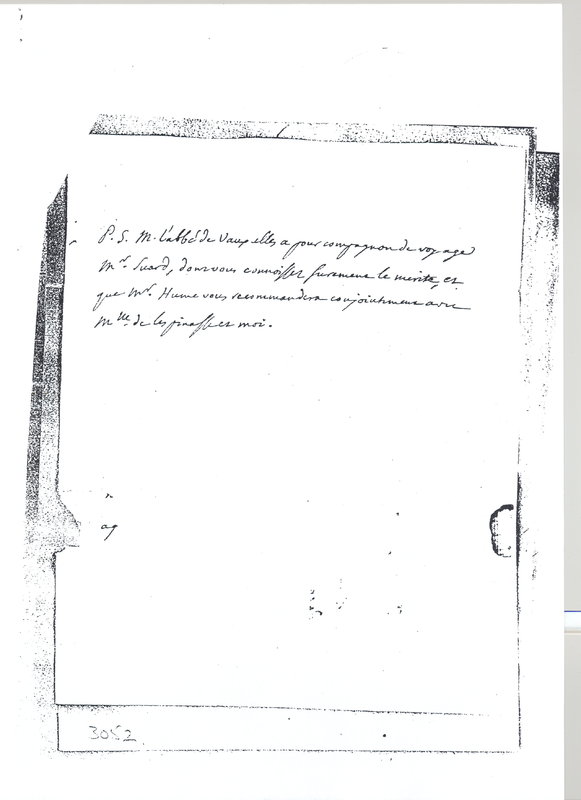 P. S. M. l'abbé de Vauxelles a pour compagnon de voyage
Mr. Suard, dont vous connoissez surement le merite, et
que Mr. Hume vous recommandera conjointement avec
Mlle. de lespinasse et moi.
n
ag
3052